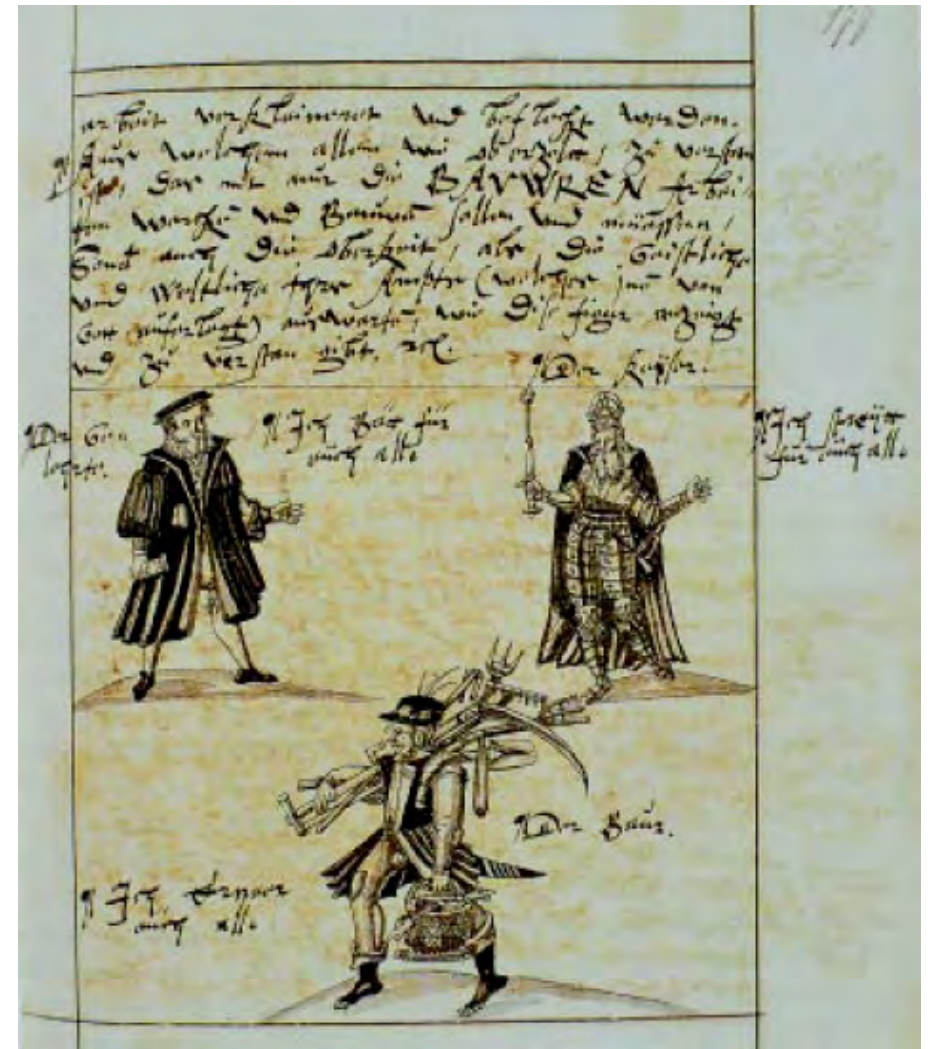 arbeit verkleineret vnd befleckt werden.
Auß welchem allem wie oberzelt, zu verstan
ist, das nit nur die BAVWREN Arbei-
ten wercken vnd Bauwen sollen vnd müessen,
Sond auch die oberkeit, als die Geistliche
vnd Weltliche Ihre Ämpter (welches jnē von
Gott aufferlegt) außwartē, wie dise figur anzeigt
vnd zu verstan gibt. etc.
Der Keyser.
Der Ge
lehrte.
Ich Bät für
euch alle
Ich streytt
für euch alle
Der Baur.
Ich Erneer
euch alle